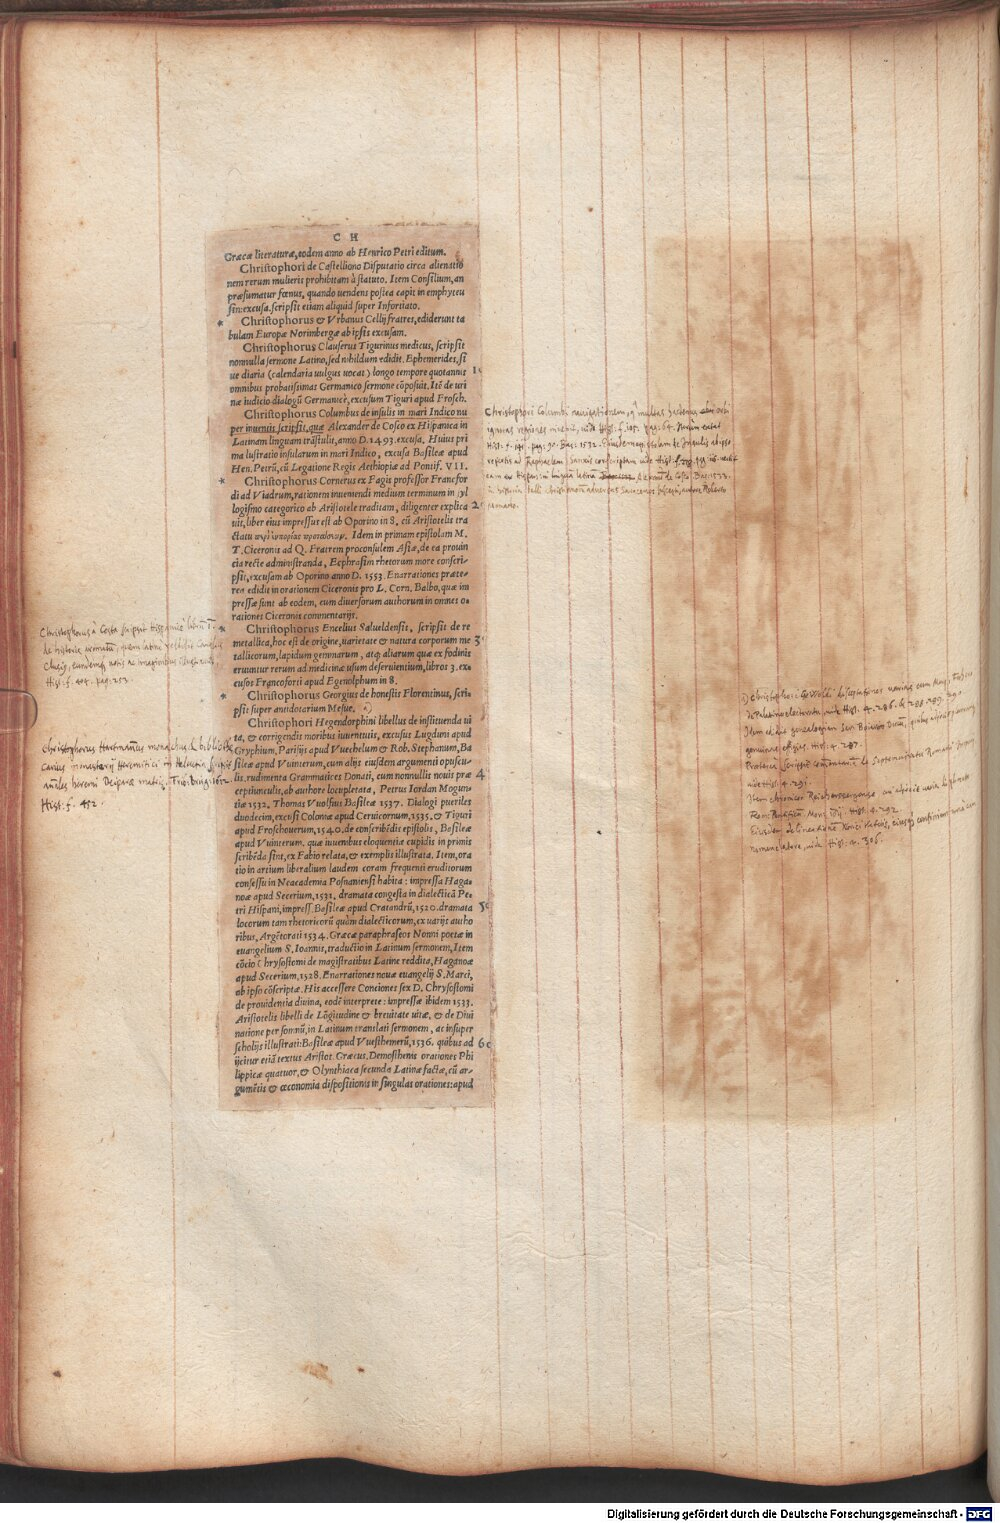 C H
Græcæ literaturæ, eodem anno ab Henrico Petri editum.
Christophori de Castelliono Disputatio circa alienatio
nem rerum mulieris prohibitam à statuto. Item Consilium, an
præsumatur fœnus, quando uendens postea capit in emphyteu
sin: excusa. scripsit etiam aliquid super Infortiato.
* Christophorus & Vrbanus Cellij fratres, ediderunt ta
bulam Europæ Norimbergæ ab ipsis excusam.
Christophorus Clauserus Tigurinus medicus, scripsit
nonnulla sermone Latino, sed nihildum edidit. Ephemerides, si
ue diaria (calendaria uulgus uocat) longo tempore quotannis 10
omnibus probatissimas Germanico sermone cōposuit. Itē de uri
næ iudicio dialogū Germanicè, excusum Tiguri apud Frosch.
Christophorus Columbus de insulis in mari Indico nu
per inuentis scripsit, quæ Alexander de Cosco ex Hispanica in
Latinam linguam trāstulit, anno D. 1493. excusa. Huius pri
ma lustratio insularum in mari Indico, excusa Basileæ apud
Hen. Petrū, cū Legatione Regis Aethiopiæ ad Pontif. VII.
* Christophorus Cornerus ex Fagis professor Francfor
di ad Viadrum, rationem inueniendi medium terminum in syl
logismo categorico ab Aristotele traditam, diligenter explica 20
uit, liber eius impressus est ab Oporino in 8. cū Aristotelis tra
ctatu περὶ εὐπορίας προτάσεων. Idem in primam epistolam M.
T. Ciceronis ad Q. Fratrem proconsulem Asiæ, de ea prouin
cia recte administranda, Ecphrasim rhetorum more conscri-
psit, excusam ab Oporino anno D. 1553. Enarrationes præte-
rea edidit in orationem Ciceronis pro L. Corn. Balbo, quæ im
pressæ sunt ab eodem, cum diuersorum authorum in omnes o-
rationes Ciceronis commentarijs.
* Christophorus Encelius Salueldensis, scripsit de re
metallica, hoc est de origine, uarietate & natura corporum me 30
tallicorum, lapidum gemmarum, atq; aliarum quæ ex fodinis
eruuntur rerum ad medicinæ usum deseruientium, libros 3. ex-
cusos Francoforti apud Egenolphum in 8.
* Christophorus Georgius de honestis Florentinus, scri-
psit super antidotarium Mesue.
Christophori Hegendorphini libellus de instituenda ui
ta, & corrigendis moribus iuuentutis, excusus Lugduni apud
Gryphium, Parisijs apud Vuechelum & Rob. Stephanum, Ba
sileæ apud Vuinterum, cum alijs eiusdem argumenti opuscu-
lis, rudimenta Grammatices Donati, cum nonnullis nouis præ 4
ceptiunculis, ab authore locupletata, Petrus Iordan Mogun-
tiæ 1532. Thomas Vuolfius Basileæ 1537. Dialogi pueriles
duodecim, excusi Coloniæ apud Ceruicornum, 1535. & Tiguri
apud Froschouerum, 1540. de conscribēdis epistolis, Basileæ
apud Vuinterum. quæ iuuenibus eloquentiæ cupidis in primis
scribēda sint, ex Fabio relata, & exemplis illustrata. Item, ora
tio in artium liberalium laudem coram frequenti eruditorum
consessu in Neacademia Posnaniensi habita: impressa Haga-
noæ apud Secerium, 1531. dramata congesta in dialecticā Pe-
tri Hispani, impress. Basileæ apud Cratandrū, 1520. dramata 50
locorum tam rhetoricorū quàm dialecticorum, ex uarijs autho
ribus, Argētorati 1534. Græcæ paraphraseos Nonni poetæ in
euangelium S. Ioannis, traductio in Latinum sermonem, Item
cōcio Chrysostomi de magistratibus Latine reddita, Haganoæ
apud Secerium, 1528. Enarrationes nouæ euangelij S. Marci,
ab ipso cōscriptæ. His accessere Conciones sex D. Chrysostomi
de prouidentia diuina, eodē interprete: impressæ ibidem 1533.
Aristotelis libelli de Lōgitudine & breuitate uitæ, & de Diui
natione per somnū, in Latinum translati sermonem, ac insuper
scholijs illustrati: Basileæ apud Vuesthemerū, 1536. quibus ad 60
ijcitur etiā textus Aristot. Græcus. Demosthenis orationes Phi
lippicæ quatuor, & Olynthiaca secunda Latinæ factæ, cū ar-
gumētis & œconomia dispositionis in singulas orationes: apud
Christophorus à Costa scripsit Hispanicè
Hist. f. 404. pag. 253.
Christophorus Hartmannus monachus & bibliothe
carius monasterij Heremitici in Helvetia scripsit
annales heremi Deiparæ matris. Frib: Brisg: 1612.
Hist. f. 452.
Christophori Columbi navigationem, multas hactenus
ignotas regiones invenit, vide Hist. f. 105. pag. 64.
Hist. f. 141. pag. 90. Bas: 1532.
Hist. 4. 286. & 298. 299.
Hist. 4. 287.
vide Hist. 4. 291.
Hist. 4. 292.
nomenclatore, vide Hist. 4. 306.
Digitalisierung gefördert durch die Deutsche Forschungsgemeinschaft - DFG